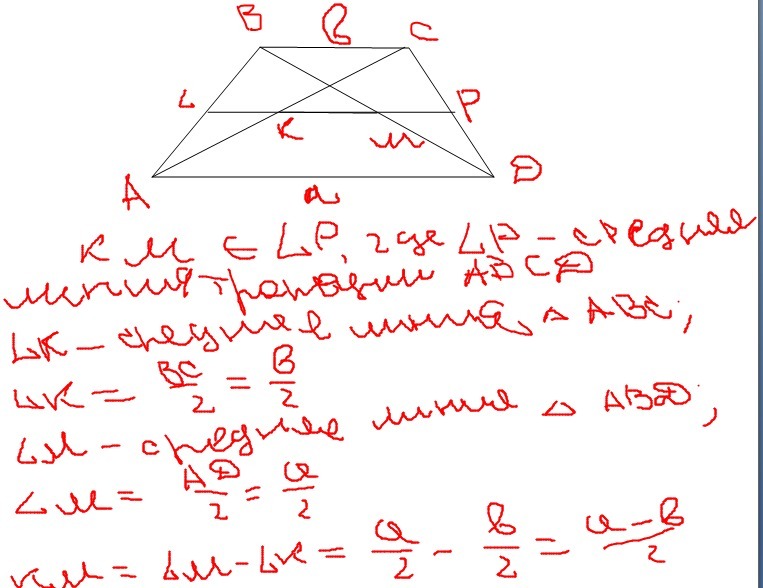 B в C
L P
K M
A a D
KM ∈ LP, где LP – средняя
линия трапеции ABCD
LK – средняя линия △ ABC;
LK = BC/2 = в/2
LM – средняя линия △ ABD;
LM = AD/2 = a/2
KM = LM - LK = a/2 - в/2 = a-в/2